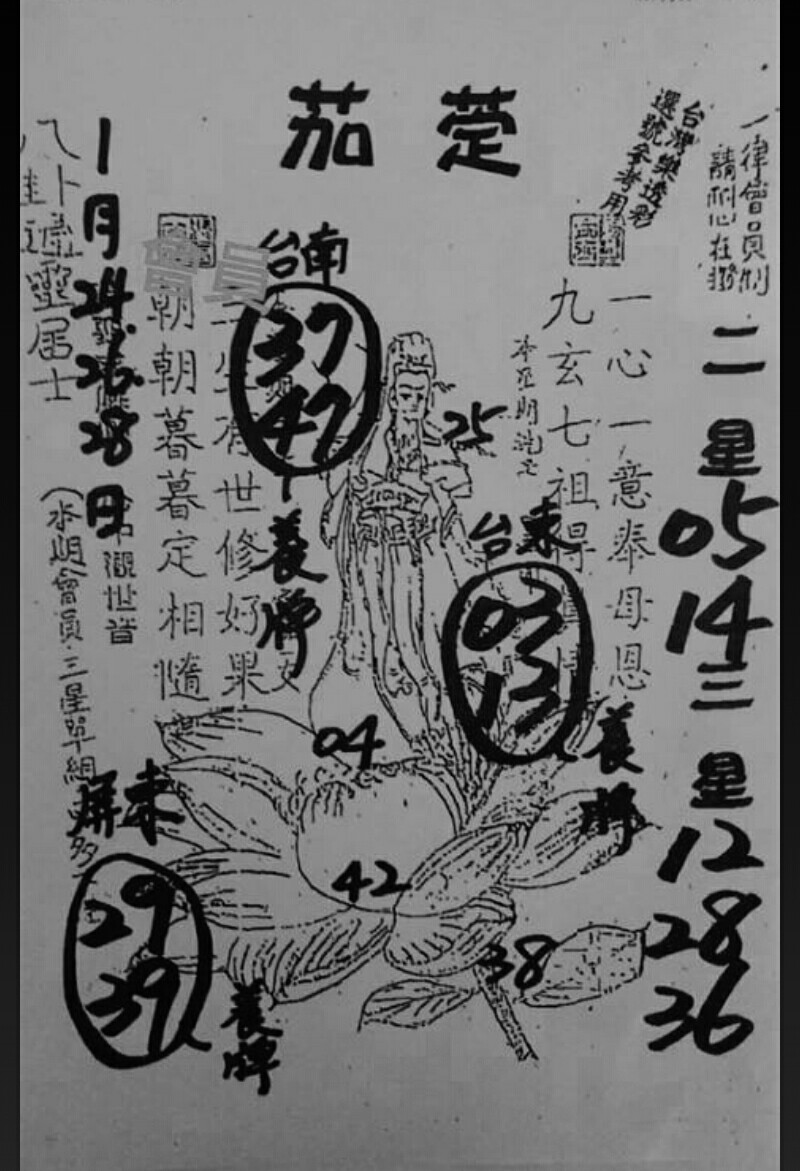 茄萣
一律會員制
請耐心在撥
台灣樂透彩
選號參考用
二星
05
14
三星
12
28
36
一心一意奉母恩
九玄七祖得
台東
03
13
養牌
25
台南
37
47
養牌
會員
世修好果
朝朝暮暮定相隨
04
42
38
1月
24.
26.
28
日
觀世音
八卦
靈居士
(本期會員三星單組
屏東
29
39
養牌